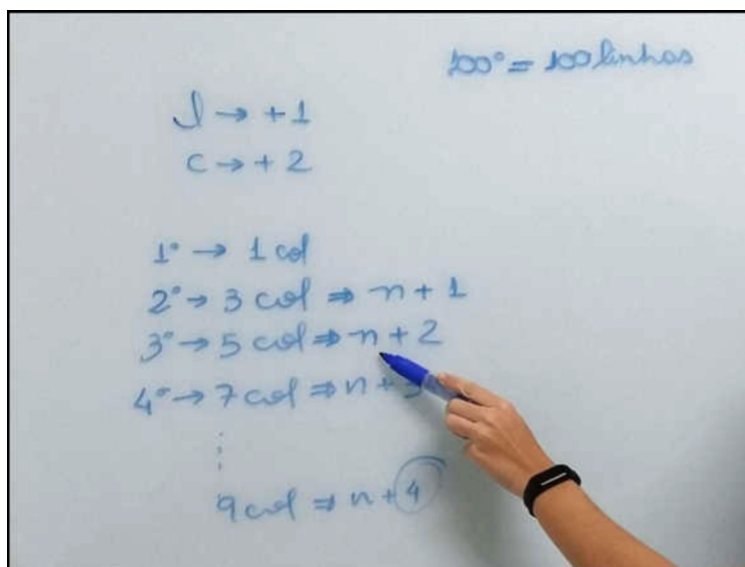 100° = 100 linhas
l → + 1
c → + 2
1° → 1 col
2° → 3 col ⇒ n + 1
3° → 5 col ⇒ n + 2
4° → 7 col ⇒ n + 3
⋮
9 col ⇒ n + 4